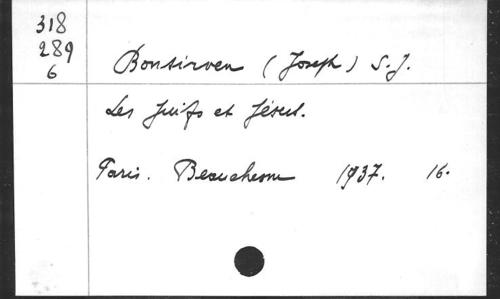 318
289
6
Bonsirven (Joseph) S.J.
Les Juifs et Jésus.
Paris. Beauchesne 1937. 16.